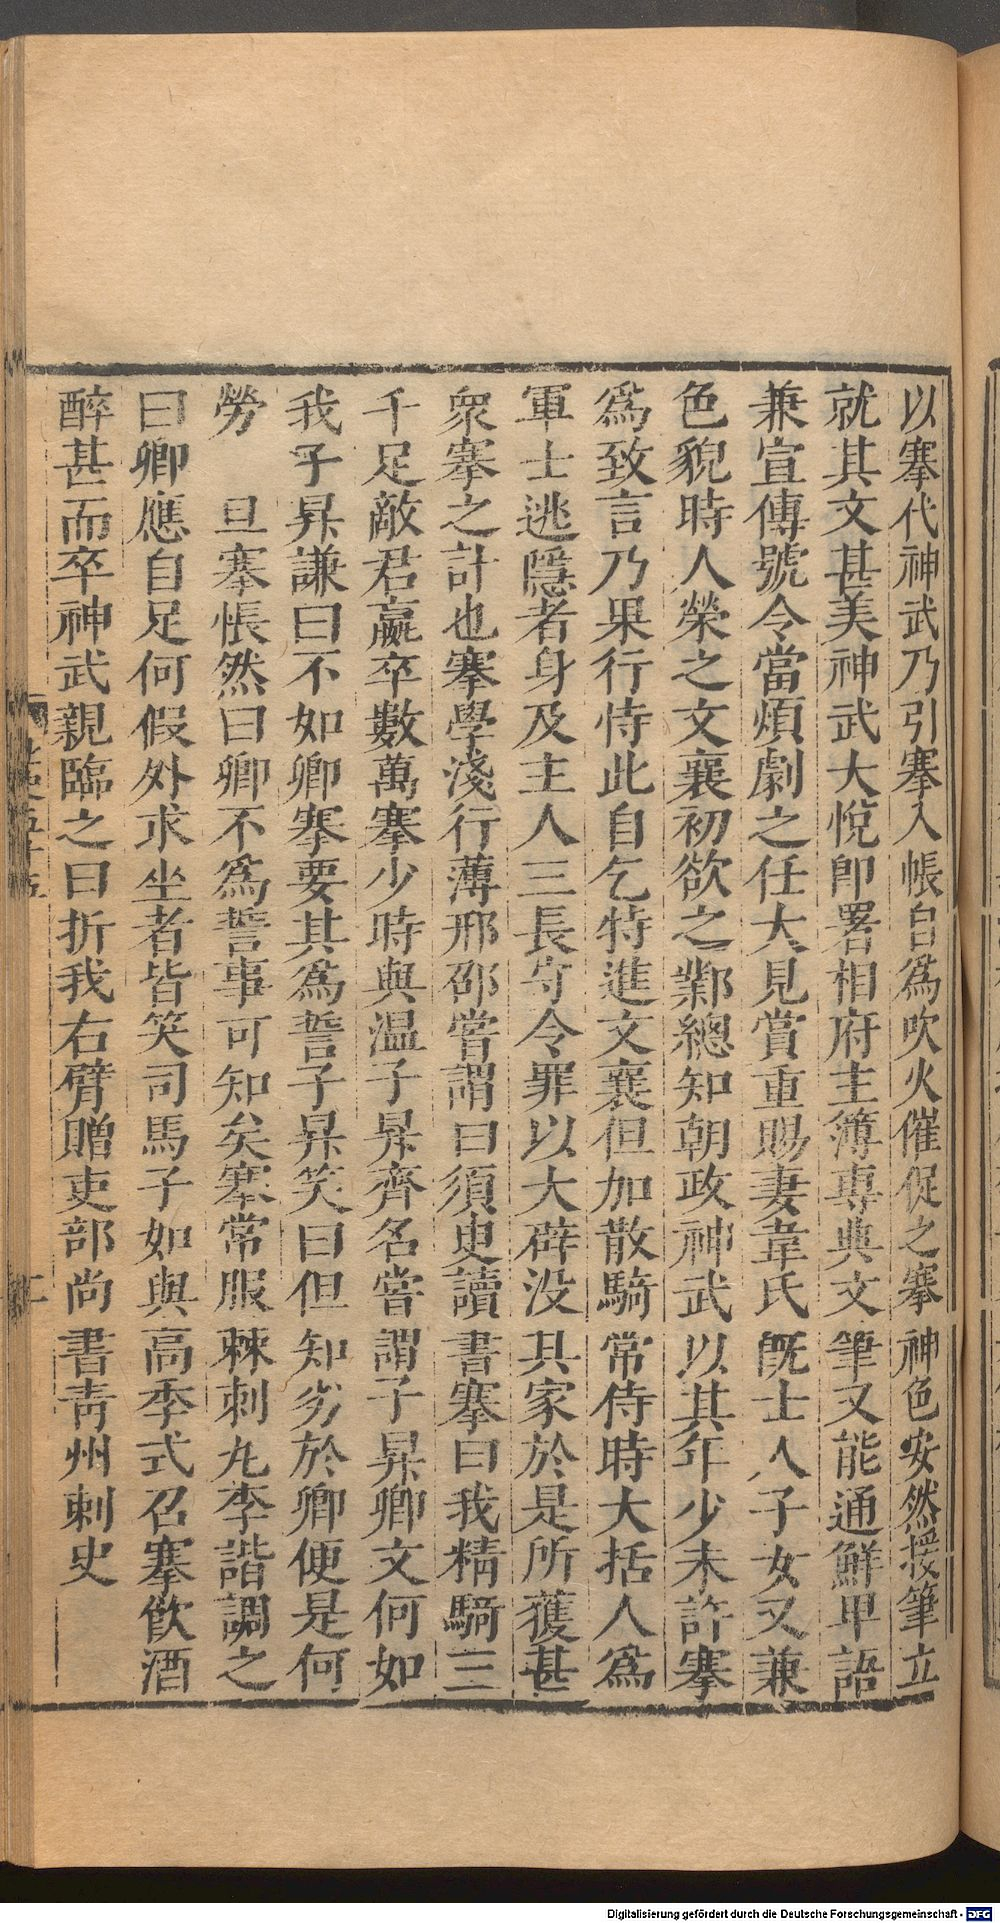 以搴代神武乃引搴入帳自爲吹火催促之搴神色安然援筆立
就其文甚美神武大悅卽署相府主簿專典文筆又能通鮮卑語
兼宣傳號令當煩劇之任大見賞重賜妻韋氏旣士人子女又兼
色貌時人榮之文襄初欲之鄴總知朝政神武以其年少未許搴
爲致言乃果行恃此自乞特進文襄但加散騎常侍時大括人爲
軍士逃隱者身及主人三長守令罪以大辟没其家於是所獲甚
衆搴之計也搴學淺行薄邢邵嘗謂曰須更讀書搴曰我精騎三
千足敵君羸卒數萬搴少時與温子昇齊名嘗謂子昇卿文何如
我子昇謙曰不如卿搴要其爲誓子昇笑曰但知劣於卿便是何
勞 旦搴悵然曰卿不爲誓事可知矣搴常服棘刺丸李諧調之
曰卿應自足何假外求坐者皆笑司馬子如與高季式召搴飮酒
醉甚而卒神武親臨之曰折我右臂贈吏部尚書靑州刺史
Digitalisierung gefördert durch die Deutsche Forschungsgemeinschaft - DFG